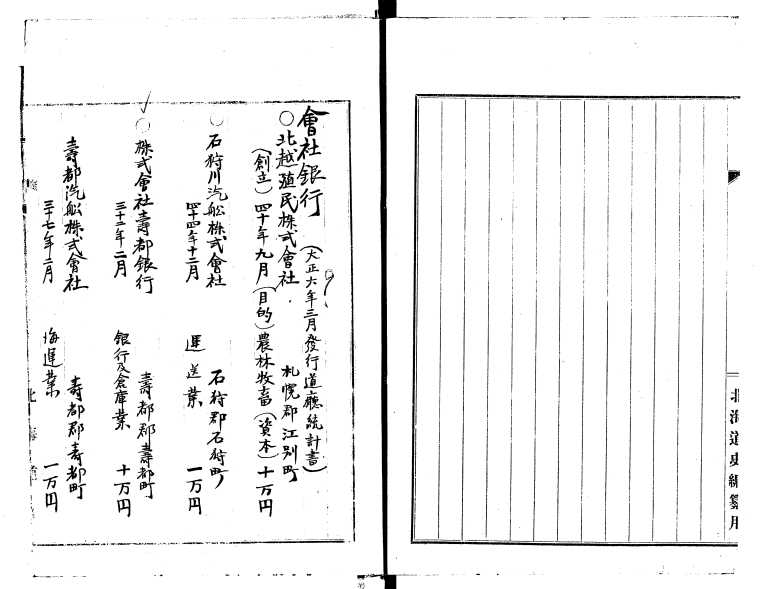 北海道史編纂用
會社銀行 (大正六年三月發行道廳統計書)
○北越殖民株式會社 札幌郡江別町
(創立)四十年九月(目的)農林牧畜(資本)十万円
○石狩川汽船株式會社 石狩郡石狩町
四十四年十二月 運送業 一万円
○株式會社壽都銀行 壽都郡壽都町
三十二年二月 銀行及倉庫業 十万円
壽都汽船株式會社 壽都郡壽都町
三十七年二月 海運業 一万円